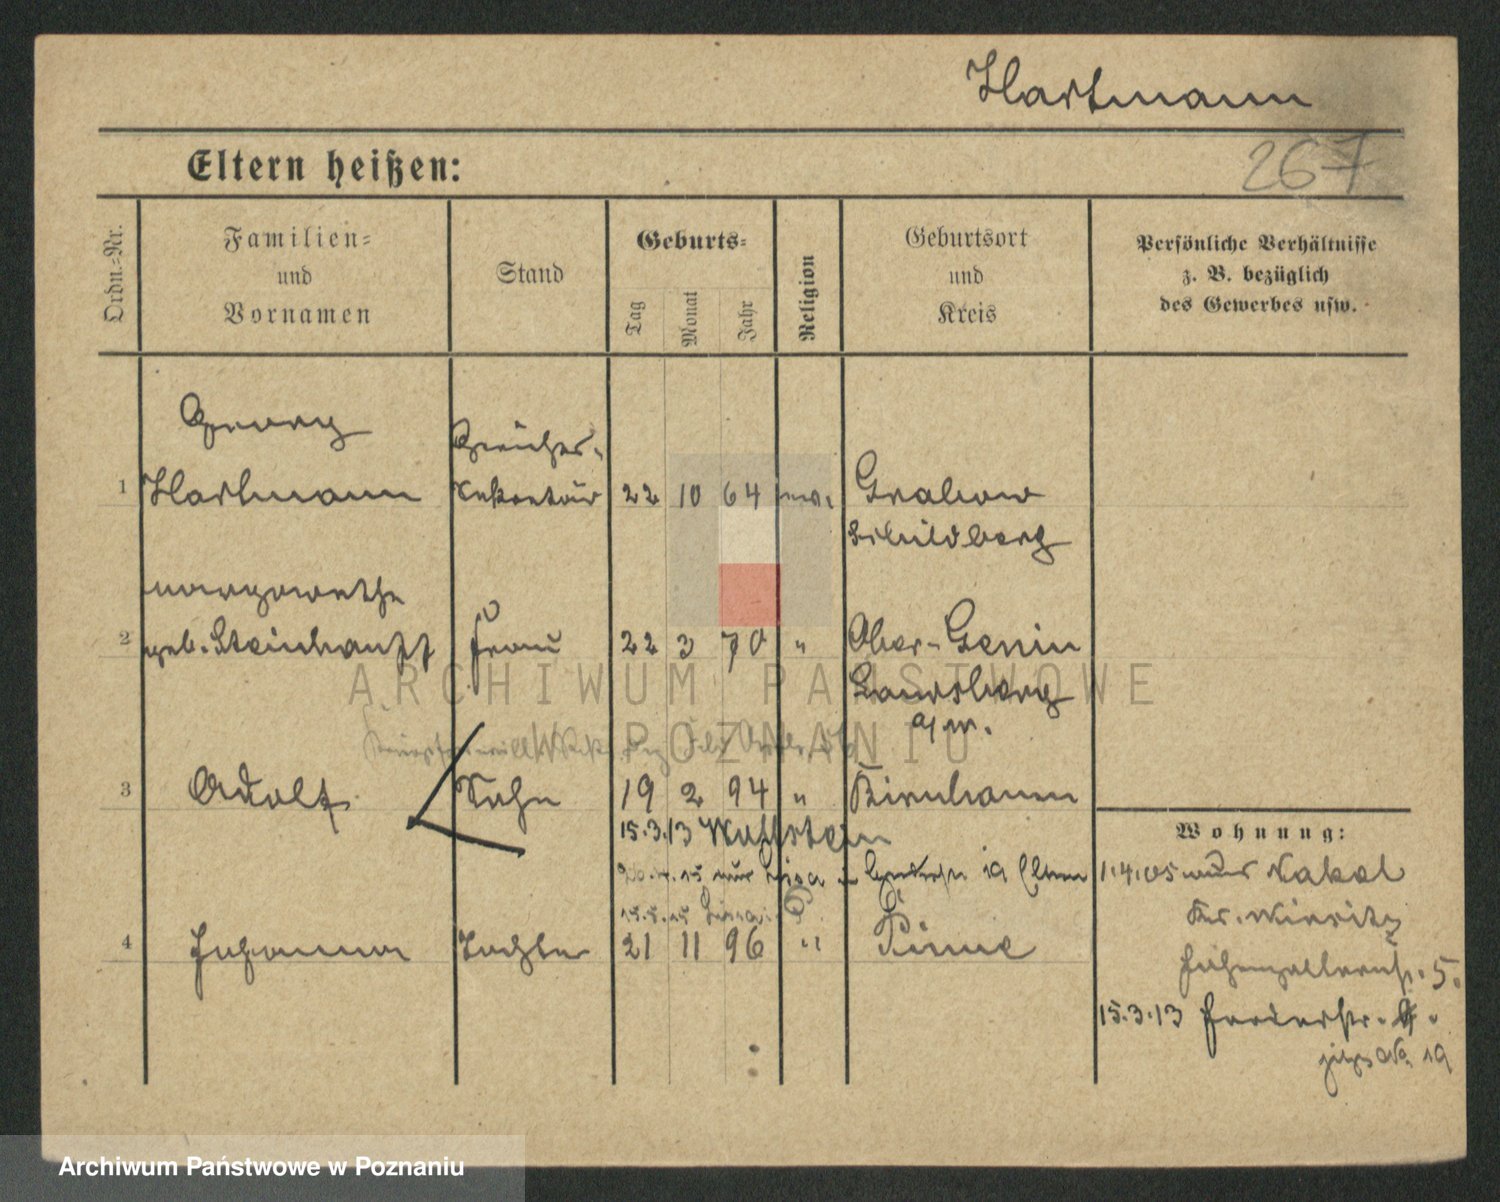 Hartmann
267
Eltern heißen:
Ordn.-Nr.
Familien-
und
Vornamen
Stand
Geburts-
Tag
Monat
Jahr
Religion
Geburtsort
und
Kreis
Persönliche Verhältnisse
z. B. bezüglich
des Gewerbes usw.
Georg
Gerichts-
1 Hartmann Sekretär 22 10 64 ev. Grabow
Schildberg
Margarethe
2 geb. Steinhauff Frau 22 3 70 " Ober-Gennin
Landsberg
a/W.
3 Adolf Sohn 19 2 94 " Birnbaum
15.3.13 Wollstein
15 Lissa 19 Eltern
Lissa
4 Johanna Tochter 21 11 96 " Pinne
Wohnung:
1.4.05 aus Nakel
Kr. Wirsitz
Hohenzollernstr. 5.
15.3.13
jetzt No. 19
ARCHIWUM PAŃSTWOWE
W POZNANIU
Archiwum Państwowe w Poznaniu